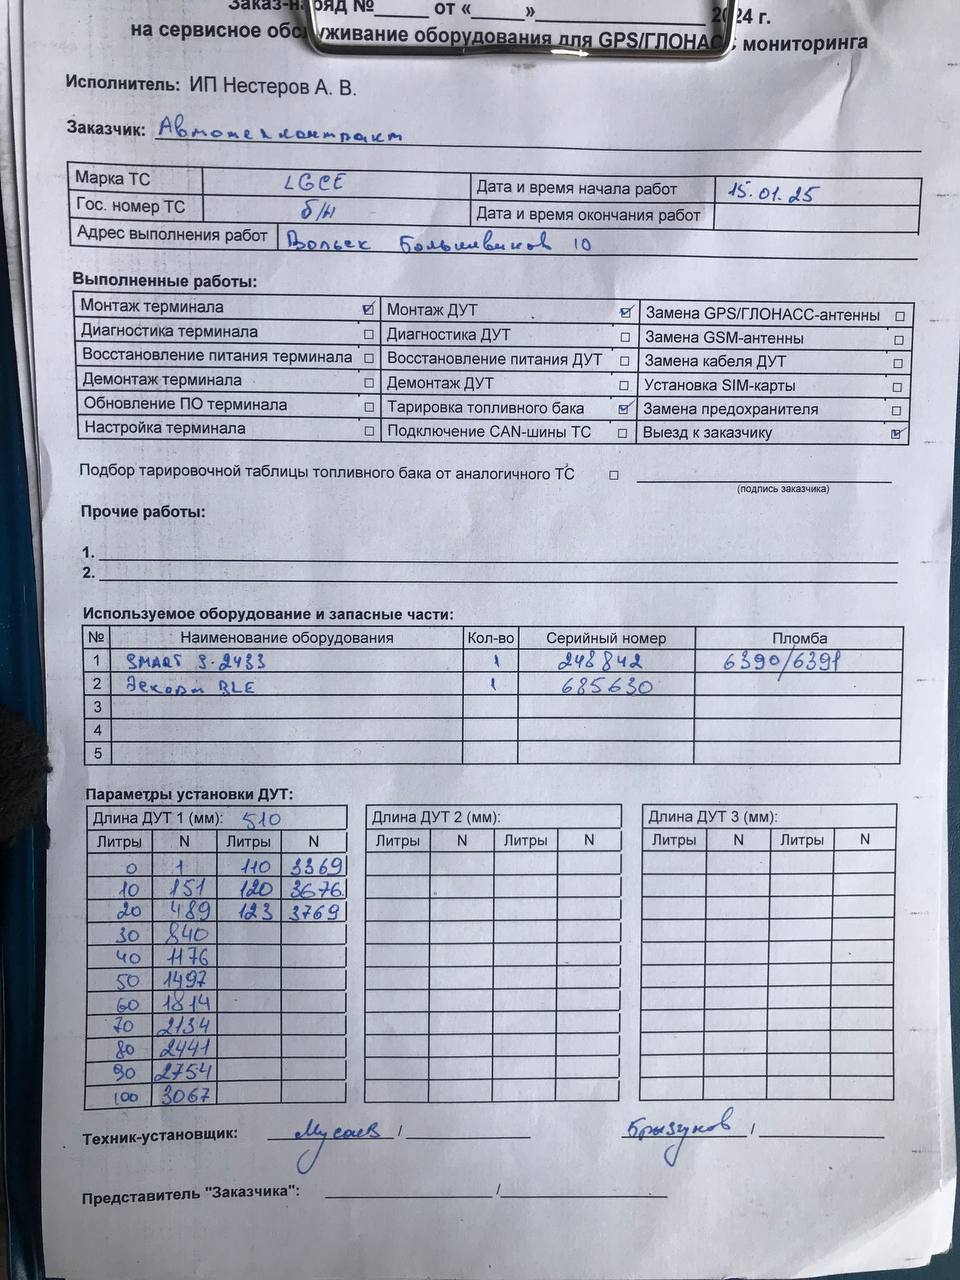 Заказ-наряд № от « » 2024 г.
на сервисное обслуживание оборудования для GPS/ГЛОНАСС мониторинга
Исполнитель: ИП Нестеров А. В.
Заказчик: Автотехконтракт
Марка ТС LGCE Дата и время начала работ 15.01.25
Гос. номер ТС б/н Дата и время окончания работ
Адрес выполнения работ Вольск Большевиков 10
Выполненные работы:
Монтаж терминала ☑ Монтаж ДУТ ☑ Замена GPS/ГЛОНАСС-антенны □
Диагностика терминала □ Диагностика ДУТ □ Замена GSM-антенны □
Восстановление питания терминала □ Восстановление питания ДУТ □ Замена кабеля ДУТ □
Демонтаж терминала □ Демонтаж ДУТ □ Установка SIM-карты □
Обновление ПО терминала □ Тарировка топливного бака ☑ Замена предохранителя □
Настройка терминала □ Подключение CAN-шины ТС □ Выезд к заказчику ☑
Подбор тарировочной таблицы топливного бака от аналогичного ТС □
(подпись заказчика)
Прочие работы:
1.
2.
Используемое оборудование и запасные части:
№ Наименование оборудования Кол-во Серийный номер Пломба
1 SMART S-2433 1 248842 6390/6391
2 Эскорт BLE 1 685630
3
4
5
Параметры установки ДУТ:
Длина ДУТ 1 (мм): 510 Длина ДУТ 2 (мм): Длина ДУТ 3 (мм):
Литры N Литры N Литры N Литры N Литры N Литры N
0 1 110 3369
10 151 120 3676
20 489 123 3769
30 840
40 1176
50 1497
60 1814
70 2134
80 2441
90 2754
100 3067
Техник-установщик: Мусаев / Брызунов /
Представитель "Заказчика": /